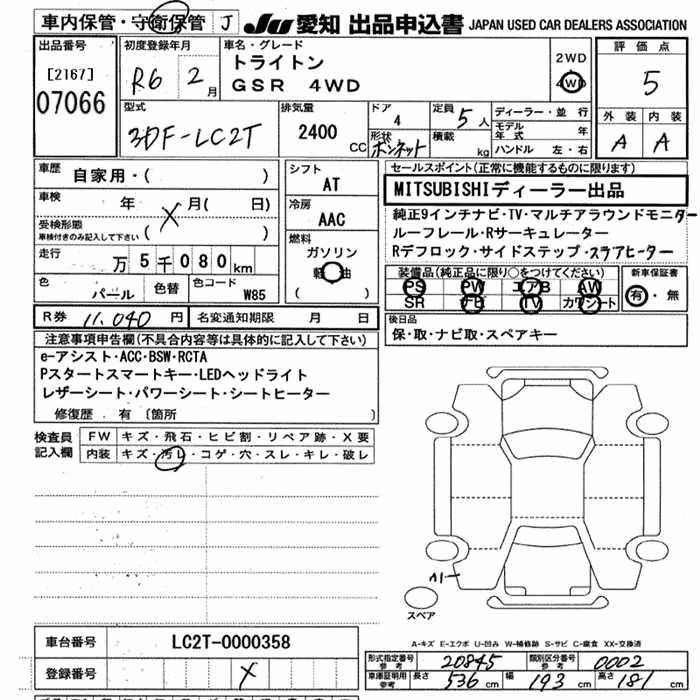 車内保管・守衛保管 J JU 愛知 出品申込書 JAPAN USED CAR DEALERS ASSOCIATION
出品番号 初度登録年月 車名・グレード 評価点
[2167] R6 2月 トライトン 2WD
07066 GSR 4WD 4WD 5
型式 排気量 ドア 定員 ディーラー・並行 外装 内装
3DF-LC2T 2400 CC 4 5人 モデル年式 年 A A
形状 ボンネット 積載 kg ハンドル 左・右
車歴 自家用・( ) シフト セールスポイント(正常に機能するものに限ります)
車検 年 月( 日) AT MITSUBISHIディーラー出品
X 冷房 純正9インチナビ・TV・マルチアラウンドモニター
受検形態 車検付きのみ記入して下さい ( ) AAC ルーフレール・Rサーキュレーター
走行 万5千080km 燃料 Rデフロック・サイドステップ・ステアヒーター
ガソリン 装備品(純正品に限り○をつけてください) 新車保証書
色 パール 色替 色コード W85 軽油 PS PW エアB AW 有・無
( ) SR ナビ TV カワシート
R券 11,040円 名変通知期限 月 日 後日品
注意事項申告欄(不具合内容等は具体的に記入して下さい) 保・取・ナビ取・スペアキー
e-アシスト・ACC・BSW・RCTA
Pスタートスマートキー・LEDヘッドライト
レザーシート・パワーシート・シートヒーター
修復歴・有〔箇所 〕
検査員 FW キズ・飛石・ヒビ割・リペア跡・X要
記入欄 内装 キズ・汚レ・コゲ・穴・スレ・キレ・破レ
A1
スペア
A-キズ E-エクボ U-凹み W-補修跡 S-サビ C-腐食 XX-交換済
車台番号 LC2T-0000358
形式指定番号 参考 20845 類別区分番号 参考 0002
登録番号 X
車庫証明用 参考 長さ 536 cm 幅 193 cm 高さ 181 cm